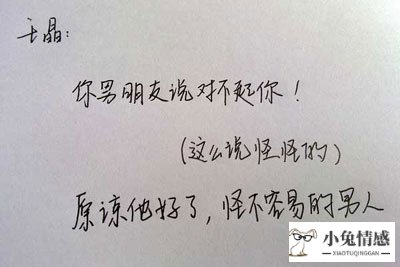 王晶：
你男朋友说对不起你！
（这么说怪怪的）
原谅他好了，怪不容易的男人
小兔情感
XIAOTUQINGGAN